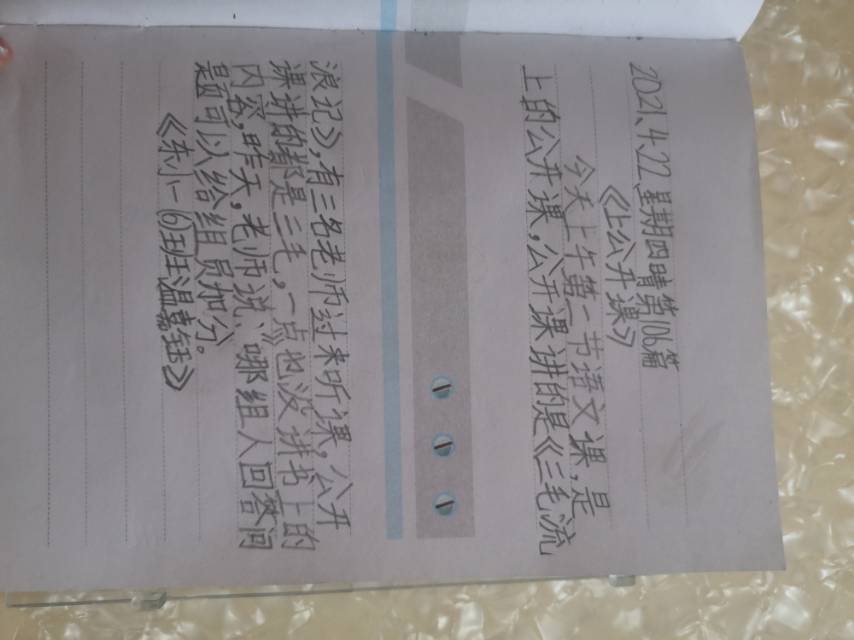 2021.4.22 星期四 晴 第106篇
《上公开课》
今天上午第一节语文课，是
上的公开课，公开课讲的是《三毛流
浪记》，有三名老师过来听课，公开
课讲的都是三毛，一点也没讲书上的
内容，昨天，老师说：哪组人回答问
题可以给组员加分。
《东小一(6)班温嘉钰》